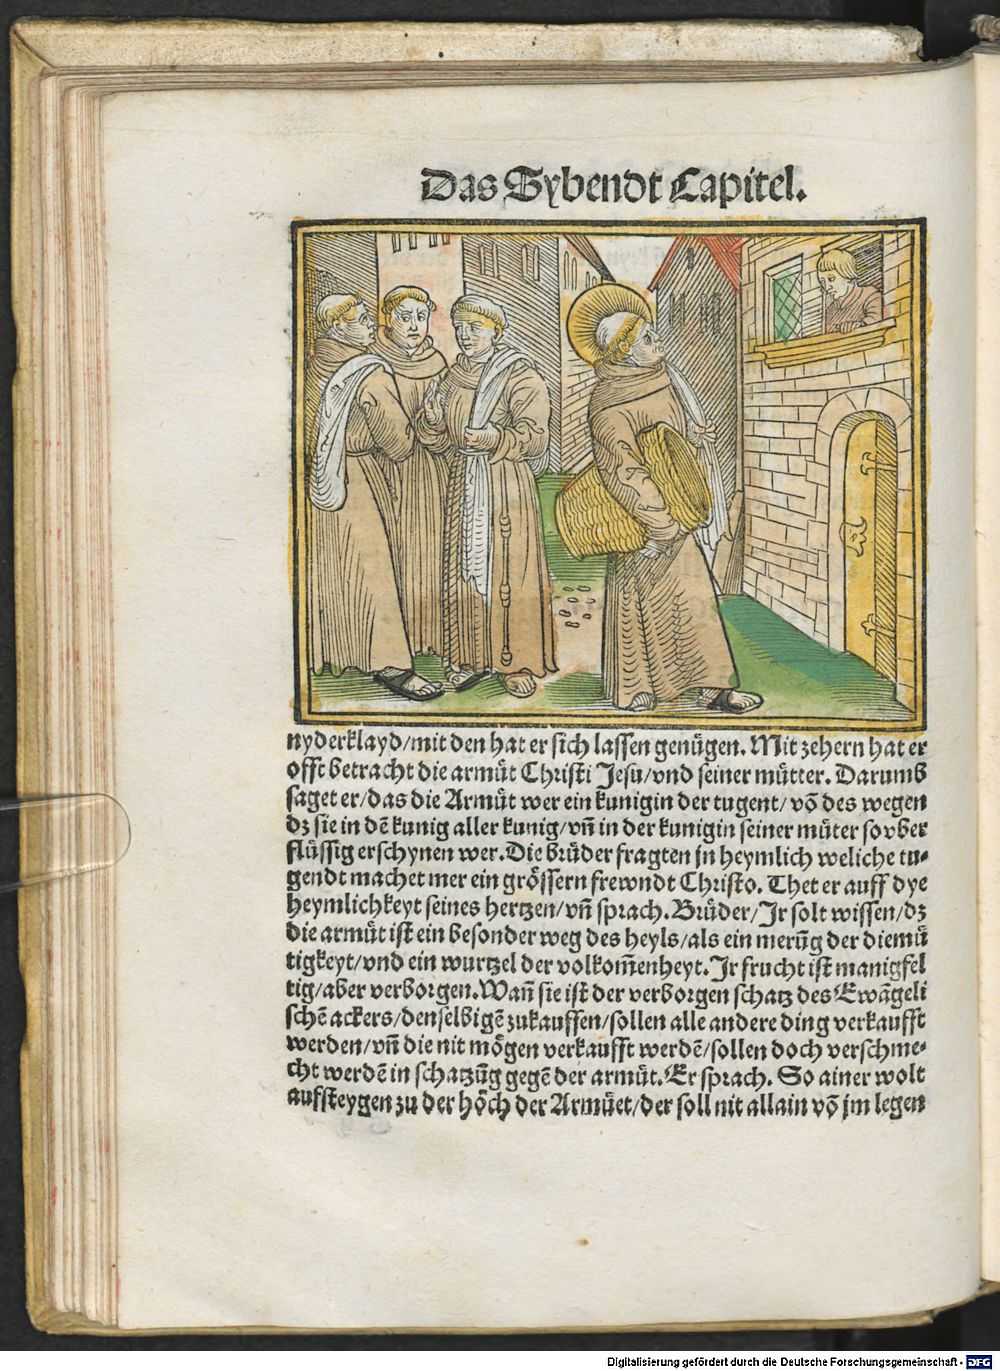 Das Sybendt Capitel.
nyderklayd/mit den hat er sich lassen genügen. Mit zehern hat er
offt betracht die armůt Christi Jesu/vnd seiner můtter. Darumb
saget er/das die Armůt wer ein kunigin der tugent/võ des wegen
dz sie in dẽ kunig aller kunig/vñ in der kunigin seiner můter so vber
flüssig erschynen wer. Die brüder fragten jn heymlich weliche tu-
gendt machet mer ein grössern frewndt Christo. Thet er auff dye
heymlichkeyt seines hertzen/vñ sprach. Brüder/Jr solt wissen/dz
die armůt ist ein besonder weg des heyls/als ein merũg der diemů
tigkeyt/vnd ein wurtzel der volkom̃enheyt. Jr frucht ist manigfel
tig/aber verborgen. Wañ sie ist der verborgen schatz des Ewãgeli
schẽ ackers/denselbigẽ zukauffen/sollen alle andere ding verkaufft
werden/vñ die nit mögen verkaufft werdẽ/sollen doch verschme-
cht werdẽ in schatzũg gegẽ der armůt. Er sprach. So ainer wolt
aufsteygen zu der höch der Armůet/der soll nit allain võ jm legen
Digitalisierung gefördert durch die Deutsche Forschungsgemeinschaft - DFG